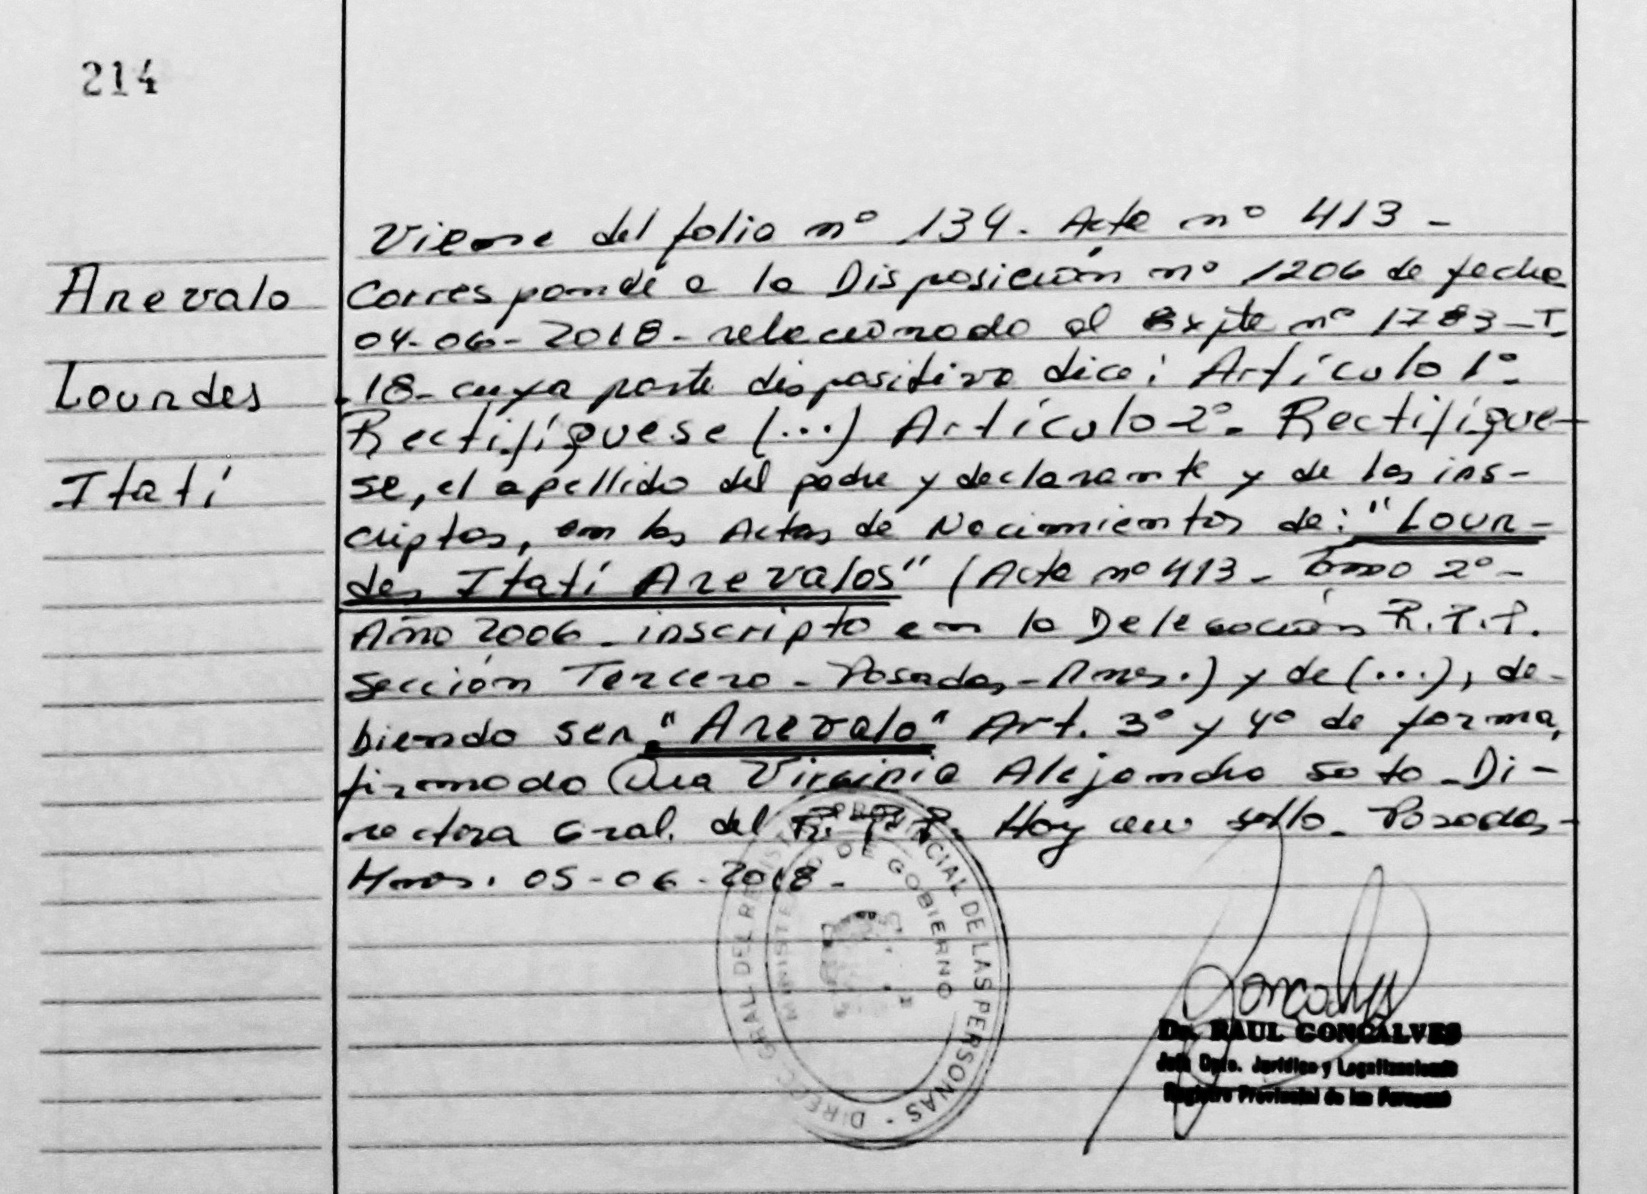 214
Arevalo
Lourdes
Itatí
Viene del folio nº 134. Acta nº 413 -
Corresponde a la Disposición nº 1206 de fecha
04-06-2018 - relacionado al Expte nº 1783-I-
-18- cuya parte dispositiva dice: Artículo 1º-
Rectifíquese (...) Artículo 2º- Rectifíque-
se, el apellido del padre y declarante y de los ins-
criptos, en las Actas de Nacimientos de: "Lour-
des Itatí Arevalos" (Acta nº 413 - Tomo 2º -
Año 2006 - inscripto en la Delegación R.P.P.
Sección Tercera - Posadas - Mnes.) y de (...), de-
biendo ser "Arevalo" Art. 3º y 4º de forma,
firmado Dra Virginia Alejandra Soto - Di-
rectora Gral. del R.P.P. Hay un sello. Posadas -
Mnes. 05-06-2018 -
DIREC. GRAL DEL REGISTRO PROVINCIAL DE LAS PERSONAS -
MINISTERIO DE GOBIERNO
Dr. RAUL GONCALVES
Jefe Dpto. Jurídico y Legalizaciones
Registro Provincial de las Personas